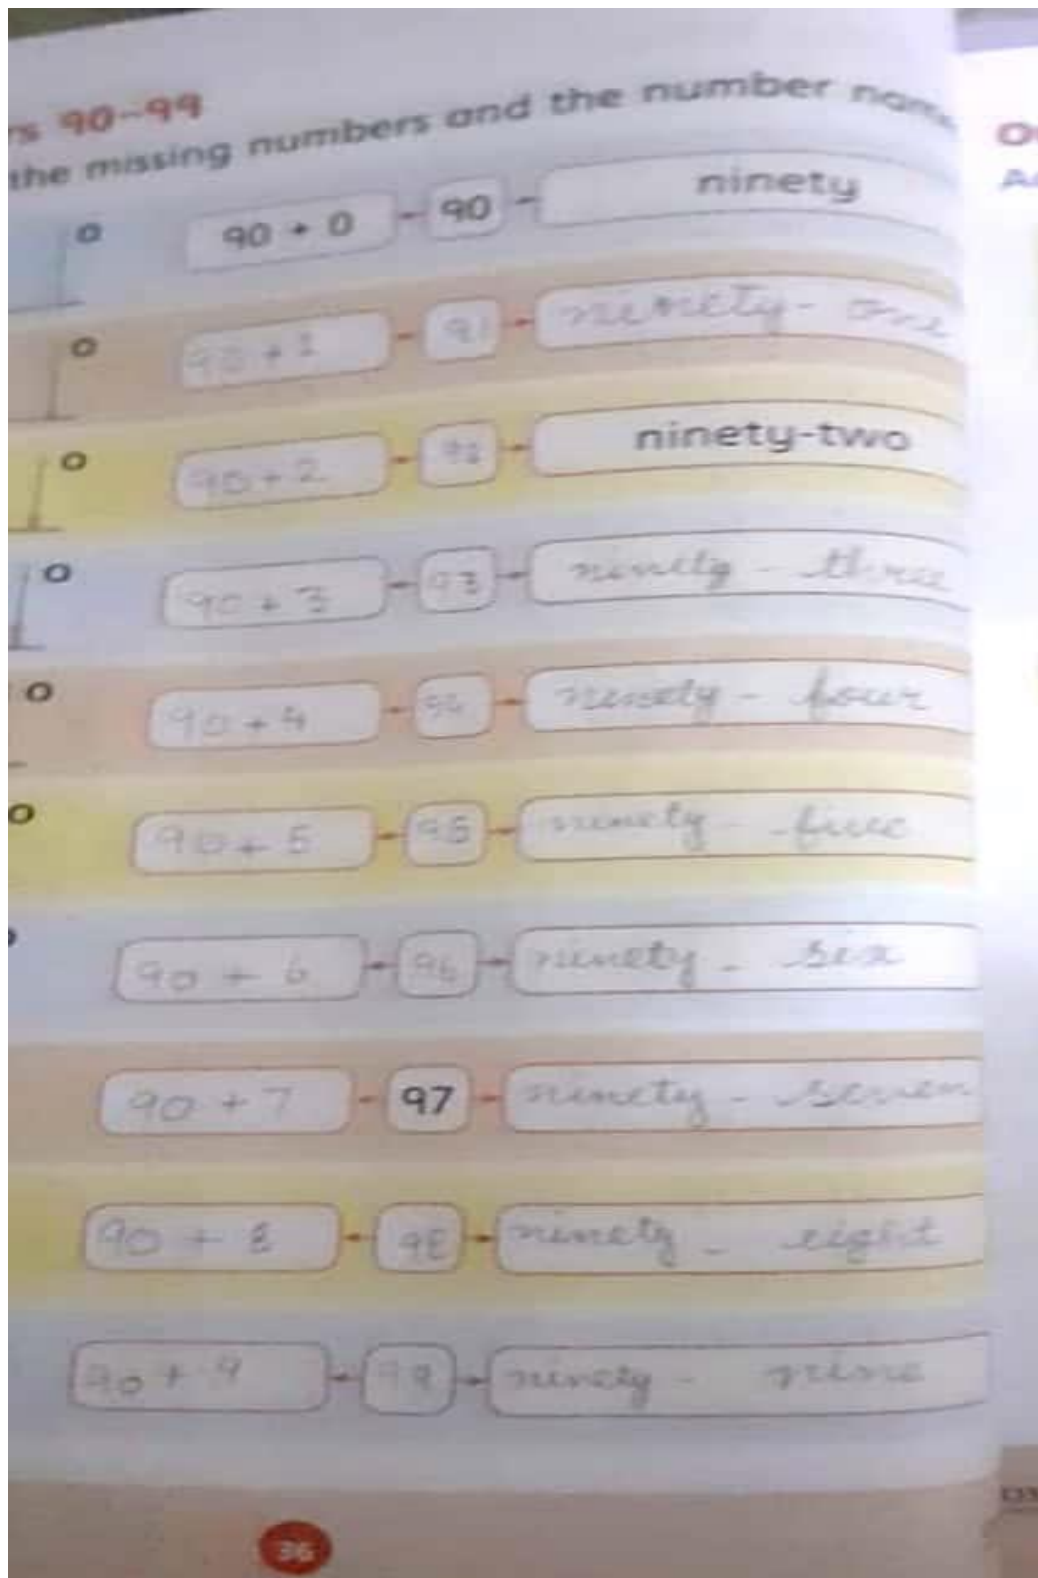 rs 90–99
the missing numbers and the number nam
O 90 + 0 90 ninety
O 90 + 1 91 ninety - one
O 90 + 2 92 ninety-two
O 90 + 3 93 ninety - three
O 90 + 4 94 ninety - four
O 90 + 5 95 ninety - five
90 + 6 96 ninety - six
90 + 7 97 ninety - seven
90 + 8 98 ninety - eight
90 + 9 99 ninety - nine
36